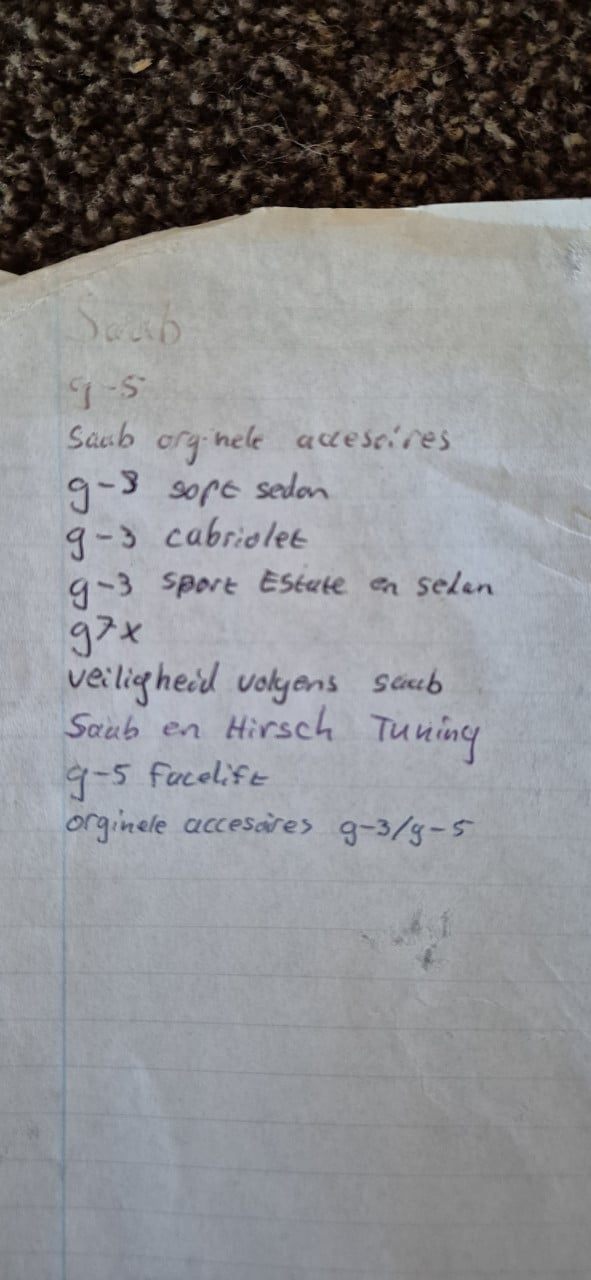 Saab
9-5
Saab orginele accesoires
9-3 sopt sedan
9-3 cabriolet
9-3 sport Estate en sedan
97x
veiligheid volgens saab
Saab en Hirsch Tuning
9-5 Facelift
orginele accesoires 9-3/9-5